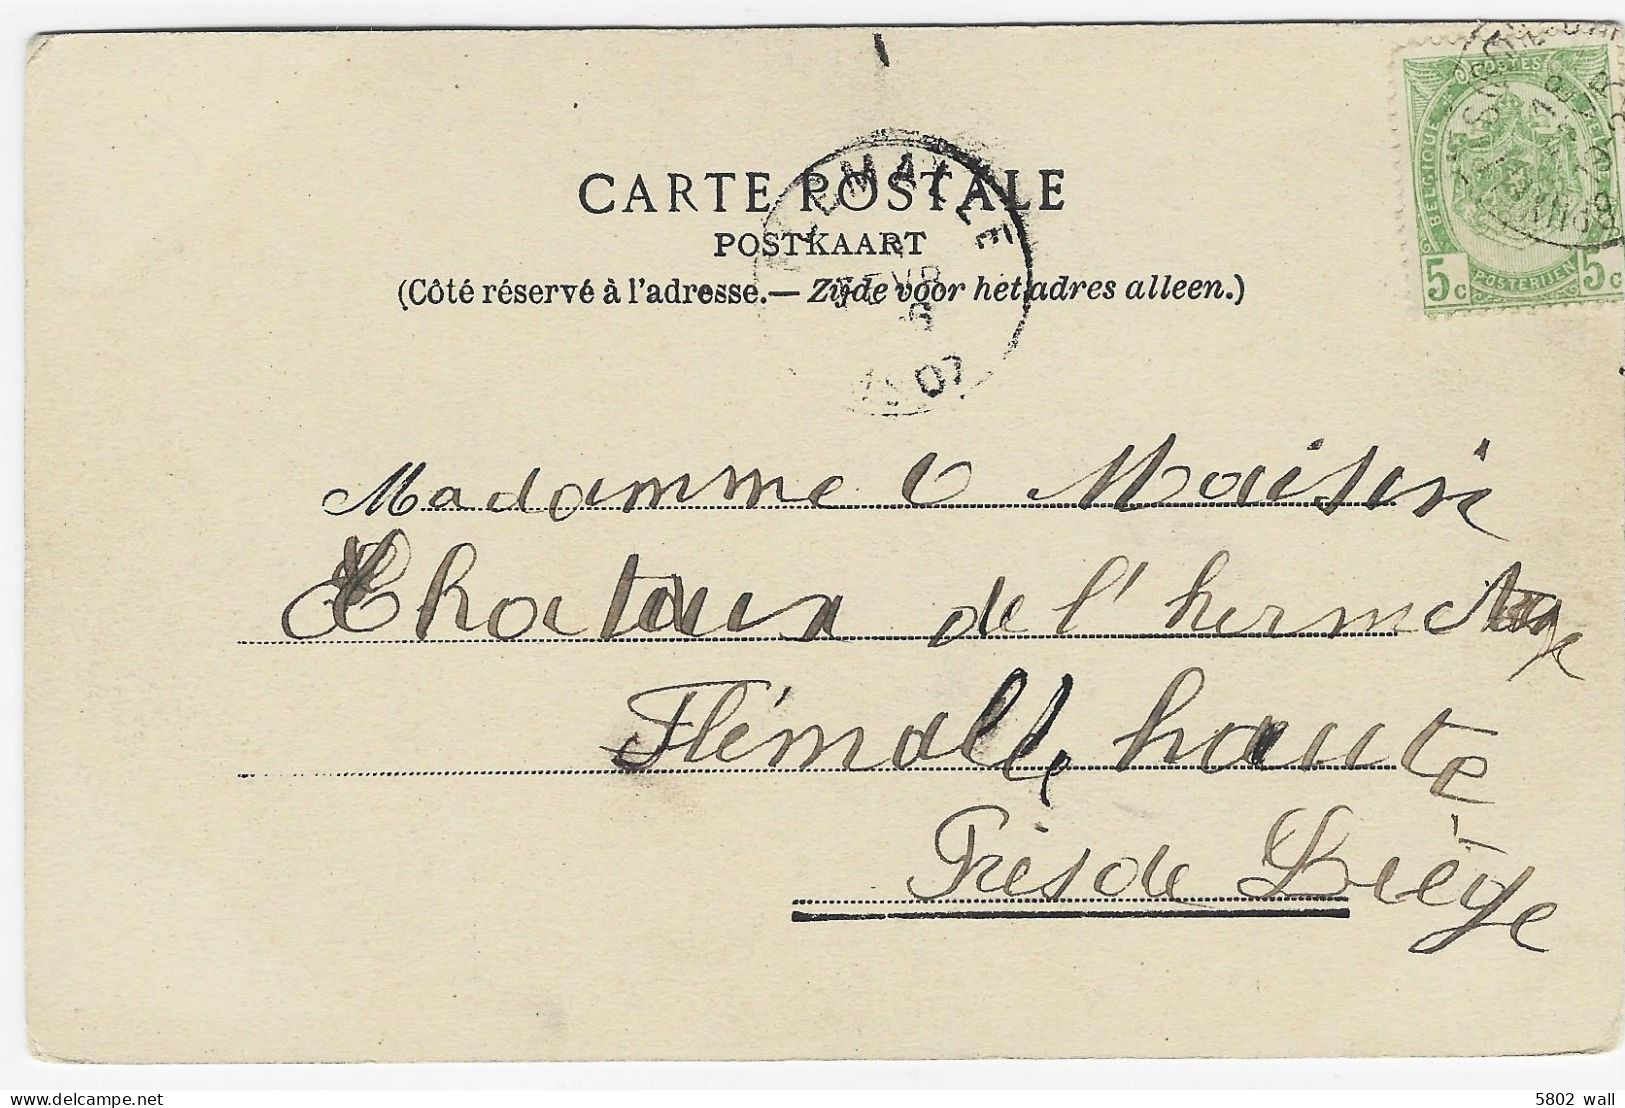 CARTE POSTALE
POSTKAART
(Côté réservé à l'adresse.— Zijde voor het adres alleen.)
BELGIQUE
POSTES
POSTERIJEN
5c 5c
FLÉMALLE
FEVR
07
Madame C Maisin
Chataux de l'hermitage
Flémalle haute
Près de Liège
5802 wall
www.delcampe.net